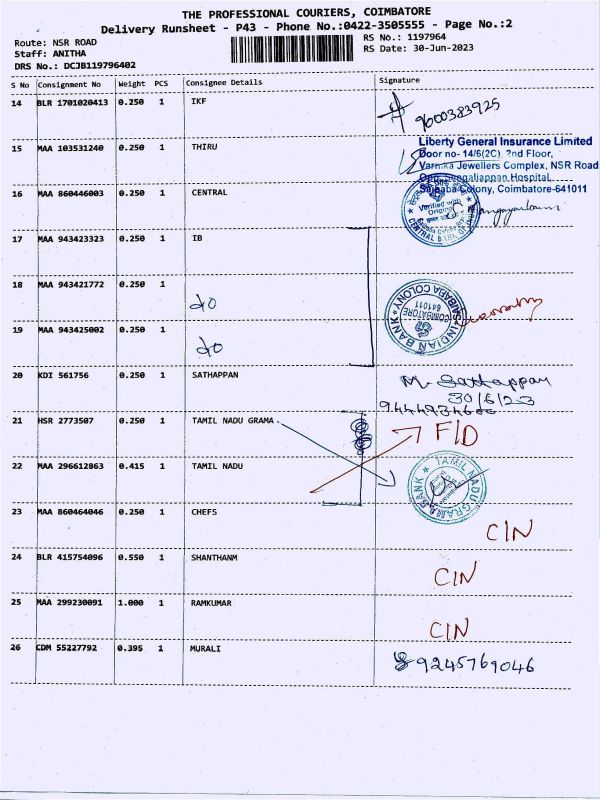 THE PROFESSIONAL COURIERS, COIMBATORE
Delivery Runsheet - P43 - Phone No.:0422-3505555 - Page No.:2
Route: NSR ROAD
RS No.: 1197964
Staff: ANITHA
RS Date: 30-Jun-2023
DRS No.: DCJB119796402
S No Consignment No Weight PCS Consignee Details Signature
14 BLR 1701020413 0.250 1 IKF
9600383925
15 MAA 103531240 0.250 1 THIRU
Liberty General Insurance Limited
Door no- 14/6(2C), 2nd Floor,
Varnika Jewellers Complex, NSR Road
Opp. Sengaliappan Hospital,
Saibaba Colony, Coimbatore-641011
16 MAA 860446003 0.250 1 CENTRAL
Verified with Original
CENTRAL BANK OF INDIA
17 MAA 943423323 0.250 1 IB
18 MAA 943421772 0.250 1
do
INDIAN BANK
SAIBABA COLONY
COIMBATORE
641011
19 MAA 943425002 0.250 1
do
20 KDI 561756 0.250 1 SATHAPPAN
M. Sathappan
30/6/23
21 HSR 2773507 0.250 1 TAMIL NADU GRAMA
F/D
22 MAA 296612863 0.415 1 TAMIL NADU
TAMIL NADU GRAMA BANK
23 MAA 860464046 0.250 1 CHEFS
C/N
24 BLR 415754096 0.550 1 SHANTHANM
C/N
25 MAA 299230091 1.000 1 RAMKUMAR
C/N
26 CDM 55227792 0.395 1 MURALI
9245769046